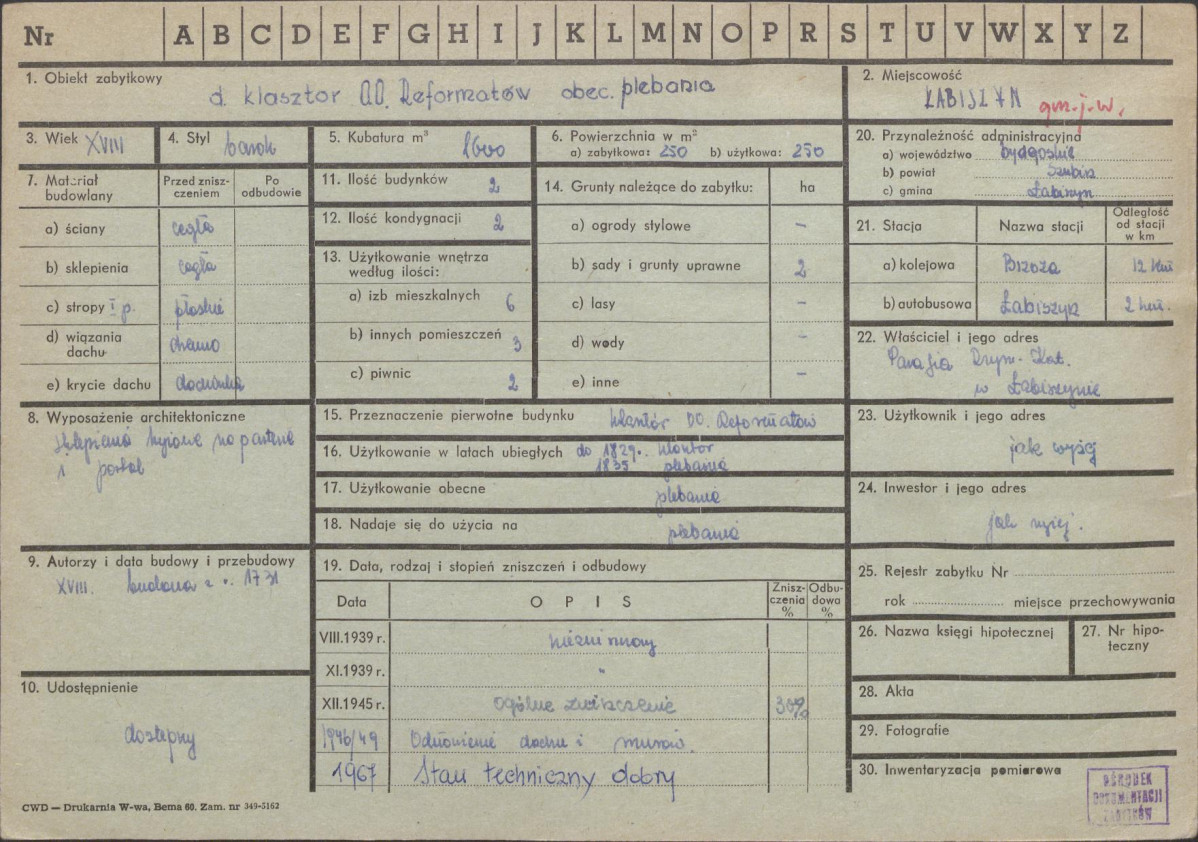 Nr A B C D E F G H I J K L M N O P R S T U V W X Y Z
1. Obiekt zabytkowy
d. klasztor OO. Reformatów obec. plebania
2. Miejscowość
ŁABISZYN gm. j. w.
3. Wiek XVIII
4. Styl barok
5. Kubatura m³ 1600
6. Powierzchnia w m²
a) zabytkowa: 250 b) użytkowa: 250
20. Przynależność administracyjna
a) województwo bydgoskie
b) powiat Szubin
c) gmina Łabiszyn
7. Materiał budowlany
Przed zniszczeniem
Po odbudowie
a) ściany cegła
b) sklepienia cegła
c) stropy I p. płaskie
d) wiązania dachu drewno
e) krycie dachu dachówka
11. Ilość budynków 2
12. Ilość kondygnacji 2
13. Użytkowanie wnętrza według ilości:
a) izb mieszkalnych 6
b) innych pomieszczeń 3
c) piwnic 2
14. Grunty należące do zabytku: ha
a) ogrody stylowe –
b) sady i grunty uprawne 2
c) lasy –
d) wody –
e) inne –
21. Stacja Nazwa stacji Odległość od stacji w km
a) kolejowa Brzoza 12 km
b) autobusowa Łabiszyn 2 km.
22. Właściciel i jego adres
Parafia Rzym. Kat.
w Łabiszynie
8. Wyposażenie architektoniczne
sklepienia na parterze
i portal
15. Przeznaczenie pierwotne budynku klasztór OO. Reformatów
16. Użytkowanie w latach ubiegłych do 1829.. klasztor
1835 plebania
17. Użytkowanie obecne plebania
18. Nadaje się do użycia na plebanię
23. Użytkownik i jego adres
jak wyżej
24. Inwestor i jego adres
jak wyżej.
9. Autorzy i data budowy i przebudowy
XVIII. budowa z r. 1731
19. Data, rodzaj i stopień zniszczeń i odbudowy
Data OPIS Zniszczenia % Odbudowa %
VIII.1939 r.
XI.1939 r. "
XII.1945 r. ogólne zniszczenie 30%
1946/49 Odnowienie dachu i murów.
1967 Stan techniczny dobry
25. Rejestr zabytku Nr
rok miejsce przechowywania
26. Nazwa księgi hipotecznej
27. Nr hipoteczny
10. Udostępnienie
dostępny
28. Akta
29. Fotografie
30. Inwentaryzacja pomiarowa
OŚRODEK
DOKUMENTACJI
ZABYTKÓW
CWD — Drukarnia W-wa, Bema 60. Zam. nr 349-5162